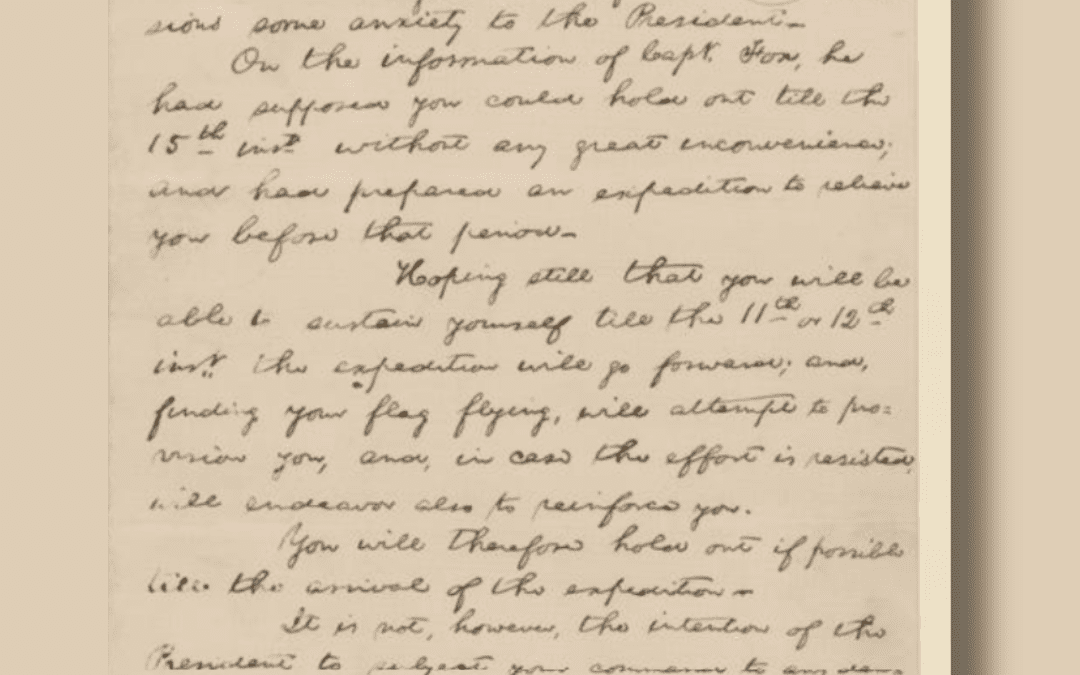 sions some anxiety to the President-
On the information of Capt. Fox, he
had supposed you could hold out till the
15th inst without any great inconvenience;
and had prepared an expedition to relieve
you before that period-
Hoping still that you will be
able to sustain yourself till the 11th or 12th
inst. the expedition will go forward; and,
finding your flag flying, will attempt to pro=
vision you, and, in case the effort is resisted,
will endeavor also to reinforce you.
You will therefore hold out if possible
till the arrival of the expedition-
It is not, however, the intention of the
President to subject your command to any dan